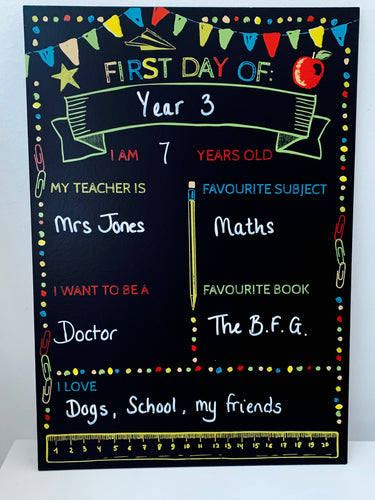 FIRST DAY OF:
Year 3
I AM 7 YEARS OLD
MY TEACHER IS
Mrs Jones
FAVOURITE SUBJECT
Maths
I WANT TO BE A
Doctor
FAVOURITE BOOK
The B.F.G.
I LOVE
Dogs, School, my friends
1 2 3 4 5 6 7 8 9 10 11 12 13 14 15 16 17 18 19 20